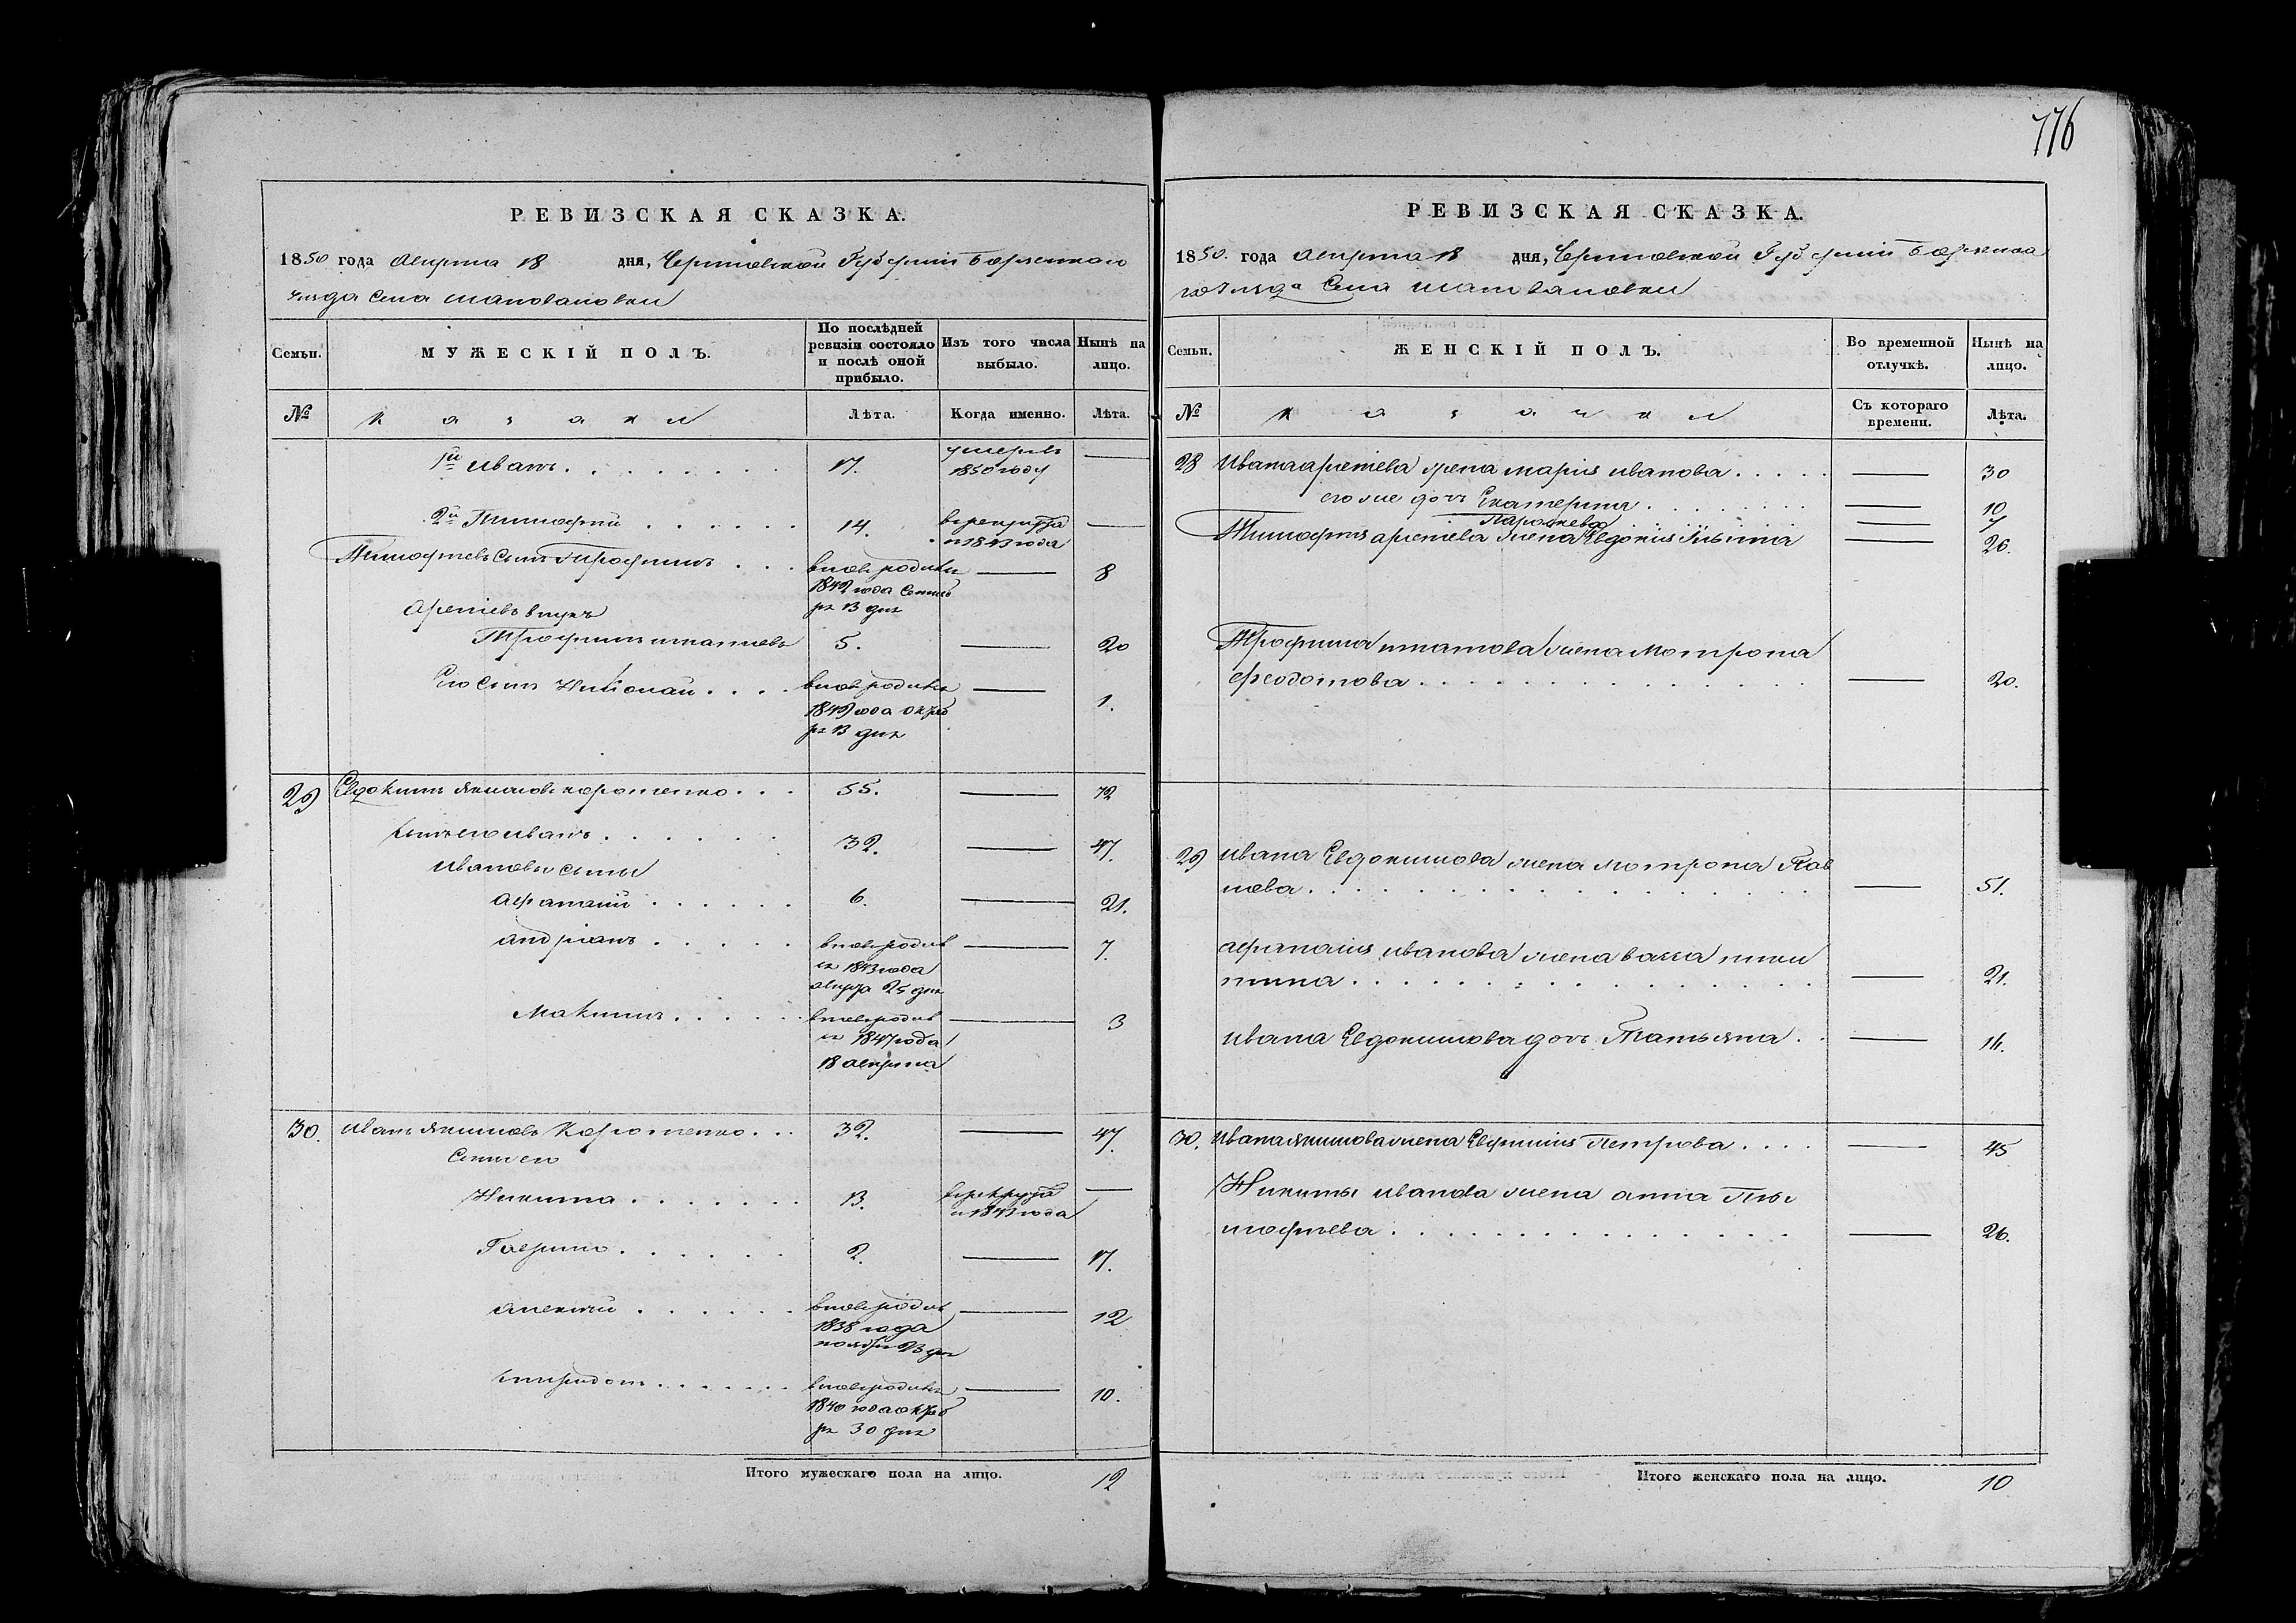 776
РЕВИЗСКАЯ СКАЗКА.
1850 года Августа 18 дня, Черниговской Губернии Борзенского
уезда Села Шаповаловки
Семьи.
МУЖЕСКІЙ ПОЛЪ.
По послѣдней ревизіи состояло и послѣ оной прибыло.
Изъ того числа выбыло.
Нынѣ на лицо.
№
Казаки
Лѣта.
Когда именно.
Лѣта.
1й Иванъ 17. умеръ въ —
1850 году
2й Тимофей 14. в рекрута —
1843 года
Тимофеевъ сынъ Трофимъ вновь родился — 8
1842 года
13 дня
внукъ
Трофимъ 5. — 20
Его сынъ Николай вновь родился — 1.
1849 года
13 дня
29 Евдокимъ Якимовъ Коротенко 55. — 72
Сынъ его Иванъ 32. — 47.
Ивановы сыны
Афанасий 6. — 21.
Андріанъ вновь родил — 7.
ся 1843 года
25 дня
Максимъ вновь родил — 3
ся 1847 года
18 августа
30. Иванъ Якимовъ Коротенко 32. — 47.
Сыны его
Никита 13. в рекрута —
1843 года
Гаврило 2. — 17.
Алексей вновь родил — 12
1838 года
ноября 23 дня
Спиридонъ вновь родился — 10.
1840 года октяб
ря 30 дня
Итого мужескаго пола на лицо. 12
РЕВИЗСКАЯ СКАЗКА.
1850. года Августа 18 дня, Черниговской Губернии Борзенска
го уезда Села Шаповаловки
Семьи.
ЖЕНСКІЙ ПОЛЪ.
Во временной отлучкѣ.
Нынѣ на лицо.
№
Казачки
Съ котораго времени.
Лѣта.
28 Ивана жена Марія Иванова — 30
его же дочь Екатерина — 10
— 7
Тимофея жена Евдокія Ильина — 26.
Трофима жена Мотрона
Феодотова — 20.
29 Ивана Евдокимова жена Мотрона Пав
лова — 51.
Афанасія Иванова жена Васса Ники
тина — 21.
Ивана Евдокимова дочь Татьяна — 14.
30. Ивана Якимова жена Евфимія Петрова — 45
Никиты Иванова жена Анна Ти
мофеева — 26.
Итого женскаго пола на лицо. 10